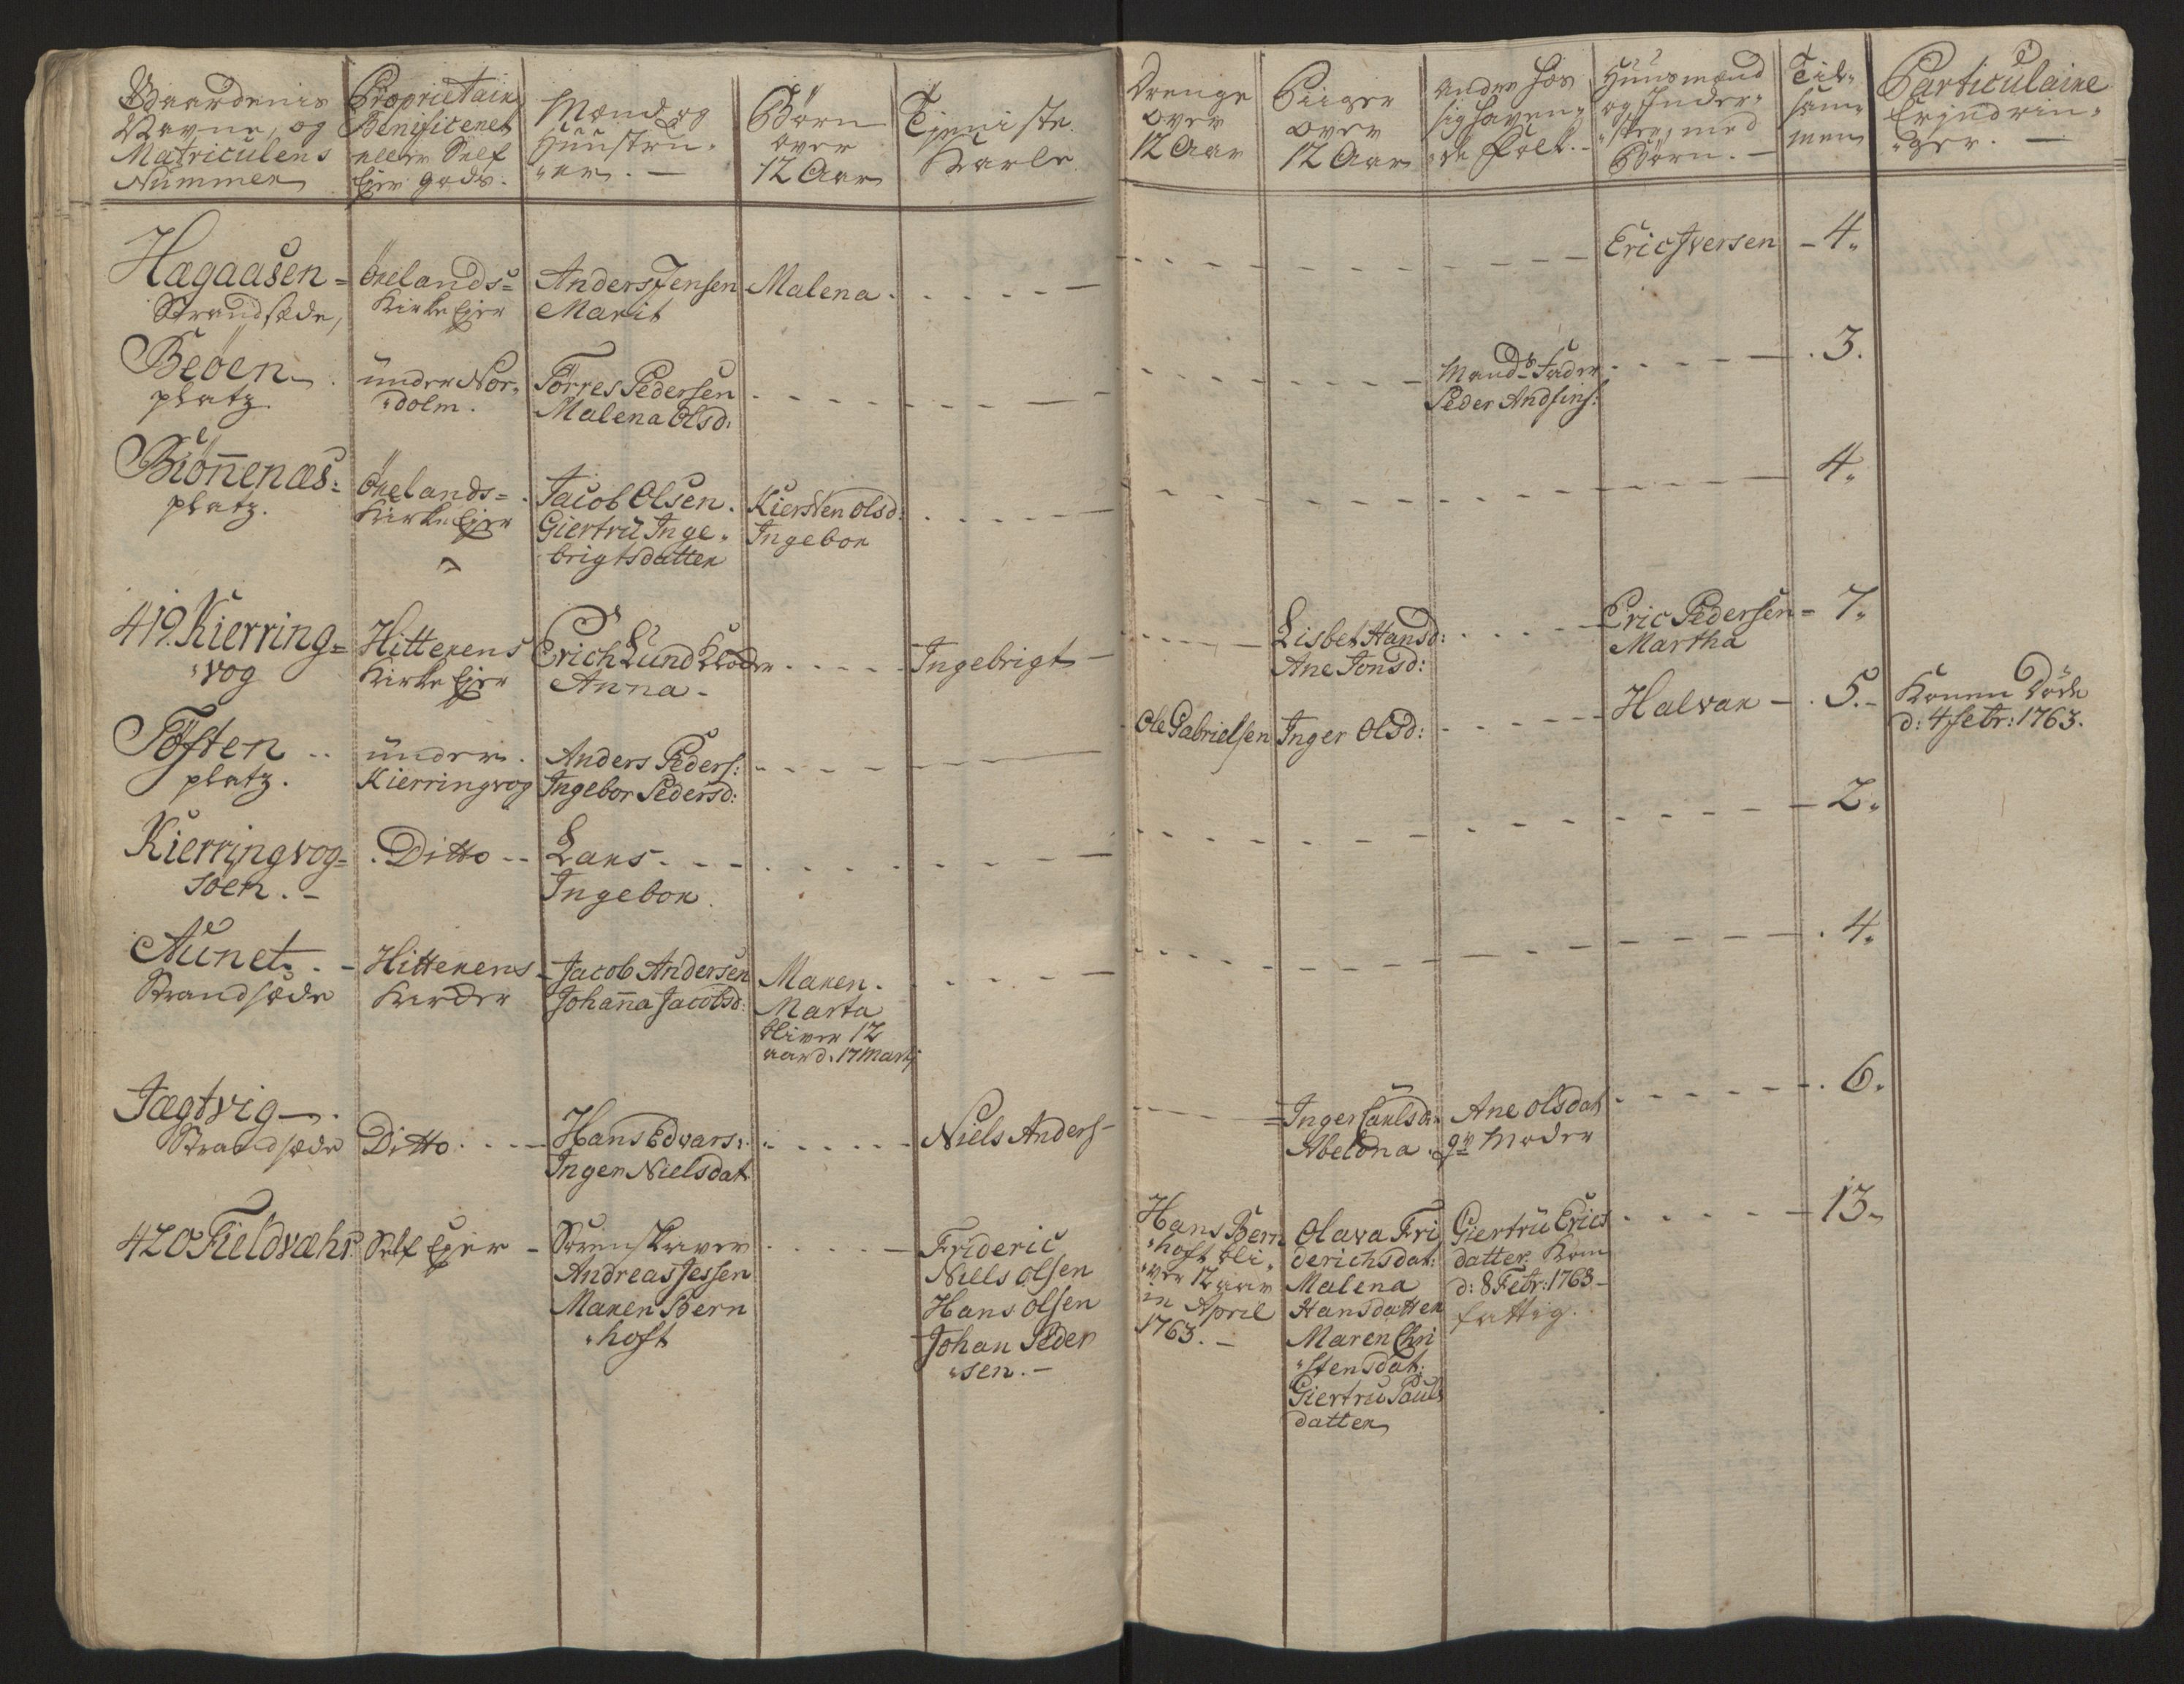 Gaardenis Navne, og Matriculens Nummer
Proprietair Benificeret eller Self Ejer Gods.
Mænd og Hüüstrü„er. —
Börn over 12 Aar
Tjeniste Karle
Drenge over 12 Aar
Piiger over 12 Aar
Andre hos sig haven„de Folk. —
Huusmænd og Inder„ster, med Börn. —
Til„sam„men
Particulaire Erindrin„ger. —
Hagaasen =
Strandsæde,
Örelands =
Kirke Ejer
Anders Jensen
Marit
Malena
Eric Iversen
4.
Beöen
platz
ünder Nor„
dolm.
Törres Pedersen
Malena Olsd:
Mands Fader
Peder Andsins:
3.
Biön̄enæs:
platz.
Örelands =
Kirke Ejer
Jacob Olsen.
Giertrü Inge„
brigtsdatter
Kiersten Olsd:
Ingebor
4.
419. Kierring =
„vog
Hitterens
Kirke Ejer
Erich Lund
Anna
Ingebrigt
Lisbet Hansd:
Ane Jonsd:
Eric Pedersen
Martha
7.
Töften
platz.
ünder
Kierringvog
Anders Peders:
Ingebor Pedersd:
Ole Gabrielsen
Inger Olsd:
Halvar
5.
Konen Döde
d: 4 Febr: 1763.
Kierringvog =
söen.
Ditto
Lars
Ingebor
2.
Aünet
Strandsæde
Hitterens
Kircker
Jacob Andersen
Johan̄a Jacobsd:
Maren.
Marta
bliver 12
aar d. 17 Martj
4.
Jægtvig
Strandsæde
Ditto
Hans Edvars:
Inger Nielsdat
Niels Anders
Inger Carlsd:
Abelona
Ane Olsdat
Moder
6.
420 Fieldvæhr
Self Ejer
Sörenskriver
Andreas Jessen
Maren Bern
„hoft
Frideric
Niels Olsen
Hans Olsen
Johan Peder
„sen.
Hans Bern
„hoft bli„
„ver 12 aar
in April
1763.
Olava Fri
derichsdat:
Malena
Hansdatter
Maren Chri
„stensdat:
Giertru Pauls
datter
Giertrü Erics
datter Kom
d: 8 Febr: 1763
fattig.
13.